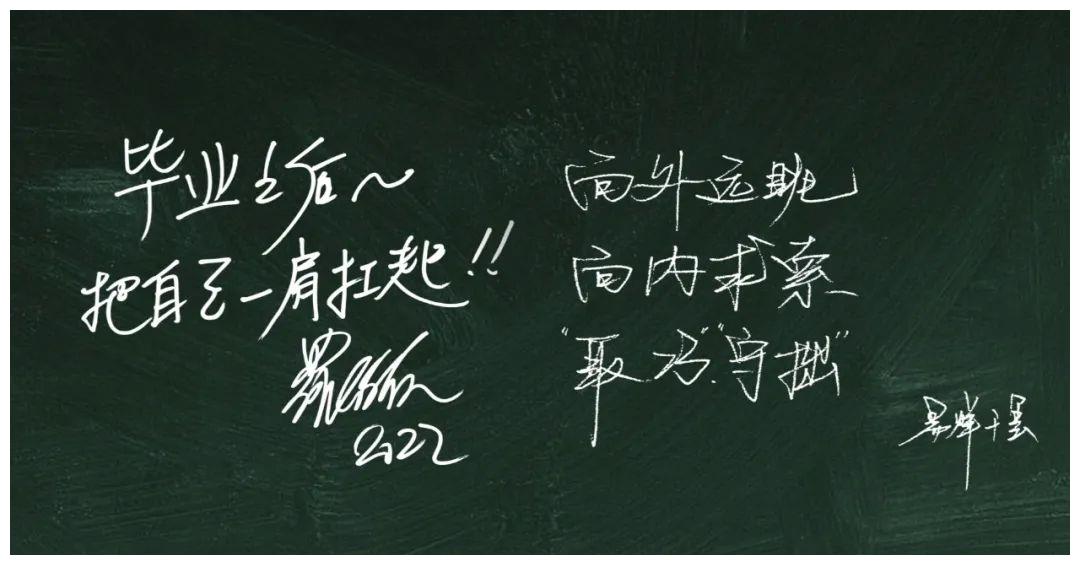 毕业之后~
把自己一肩扛起!!
2022
向外远眺
向内求索
“取巧”“守拙”
易烊千玺